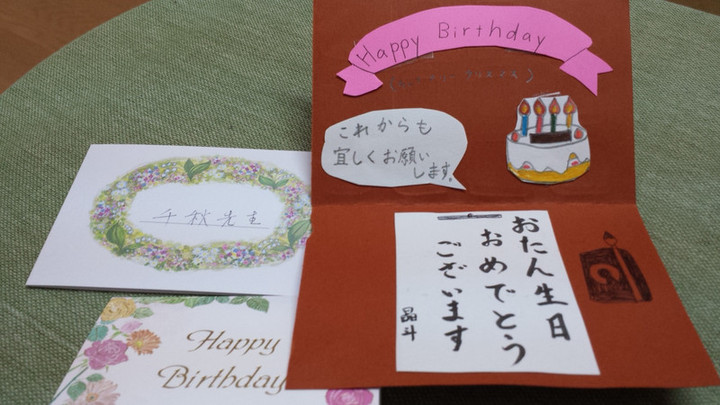 Happy Birthday
これからも
宜しくお願い
します。
おたん生日
おめでとう
ございます
晶斗
千秋先生
Happy
Birthday